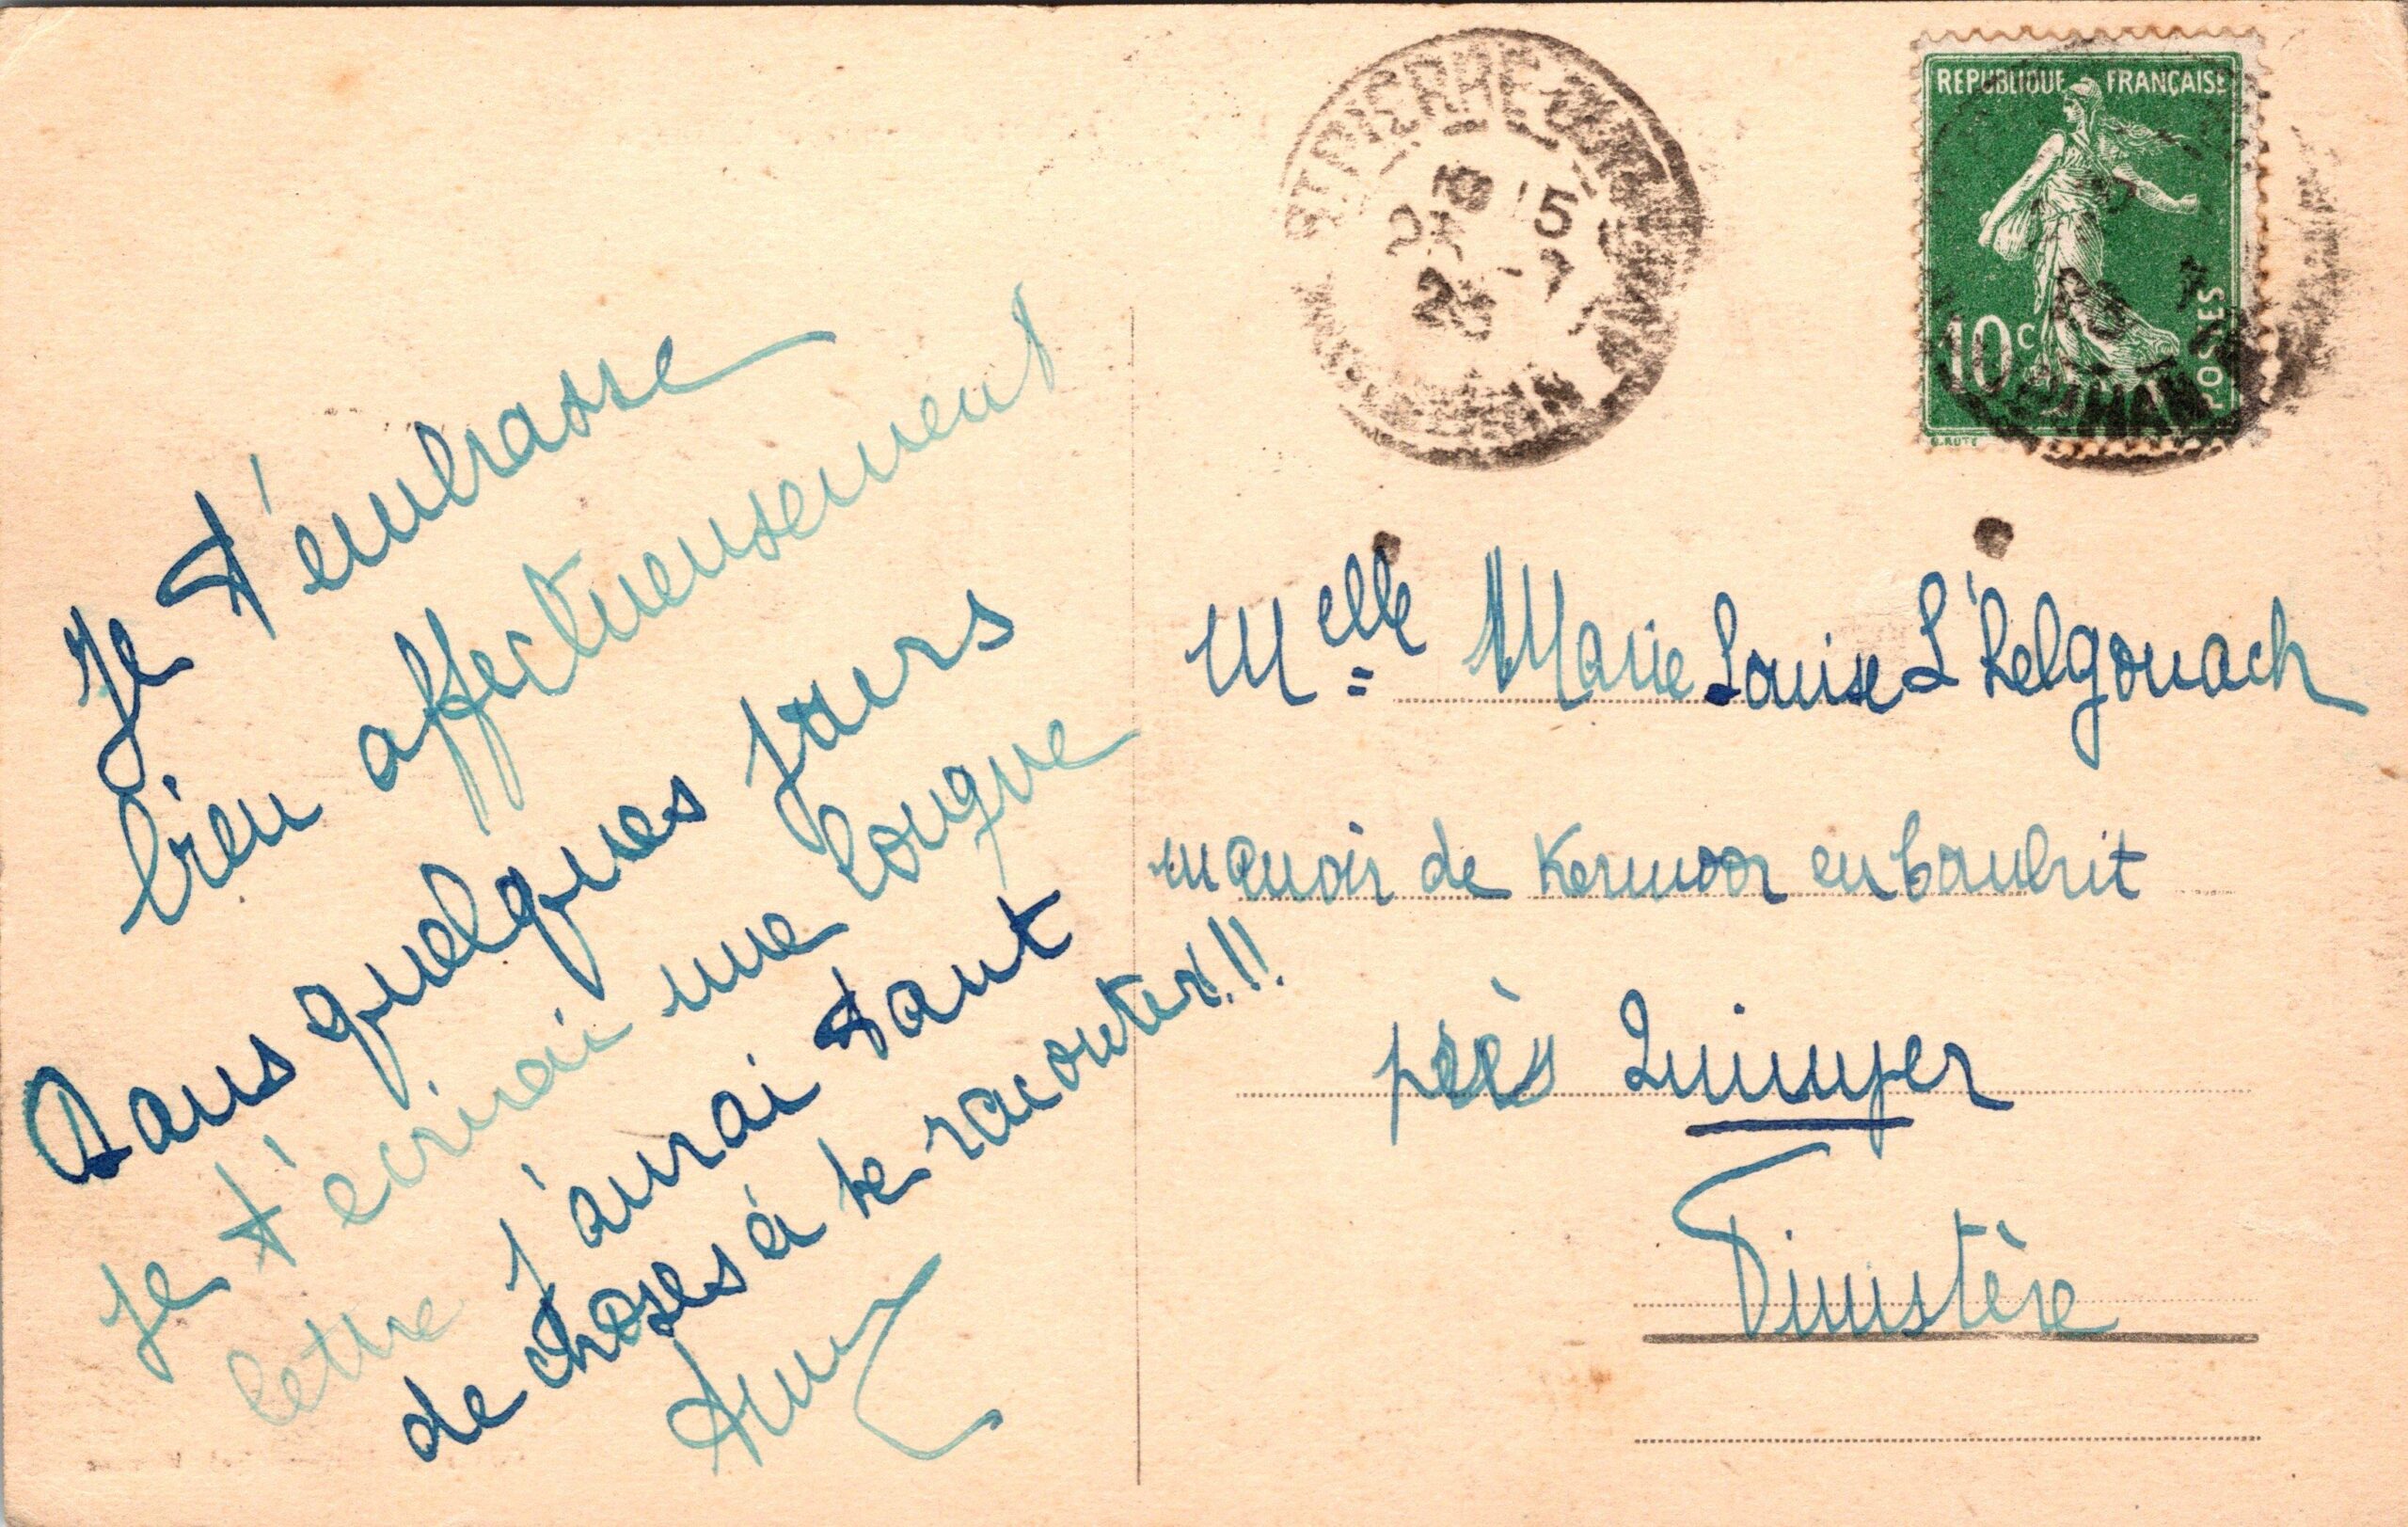 Je t'embrasse
bien affectueusement
Dans quelques jours
je t'écrirai une longue
lettre j'aurai tant
de choses à te raconter!!!
REPUBLIQUE FRANÇAISE
10c
POSTES
ST PIERRE
15
25 -7
MORBIHAN
Melle Marie Louise L'helgouach
manoir de Kermoor en Combrit
près Quimper
Finistère